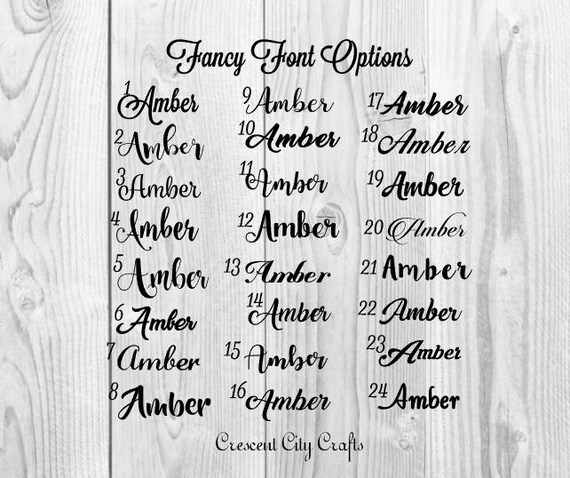 Fancy Font Options
1 Amber
2 Amber
3 Amber
4 Amber
5 Amber
6 Amber
7 Amber
8 Amber
9 Amber
10 Amber
11 Amber
12 Amber
13 Amber
14 Amber
15 Amber
16 Amber
17 Amber
18 Amber
19 Amber
20 Amber
21 Amber
22 Amber
23 Amber
24 Amber
Crescent City Crafts